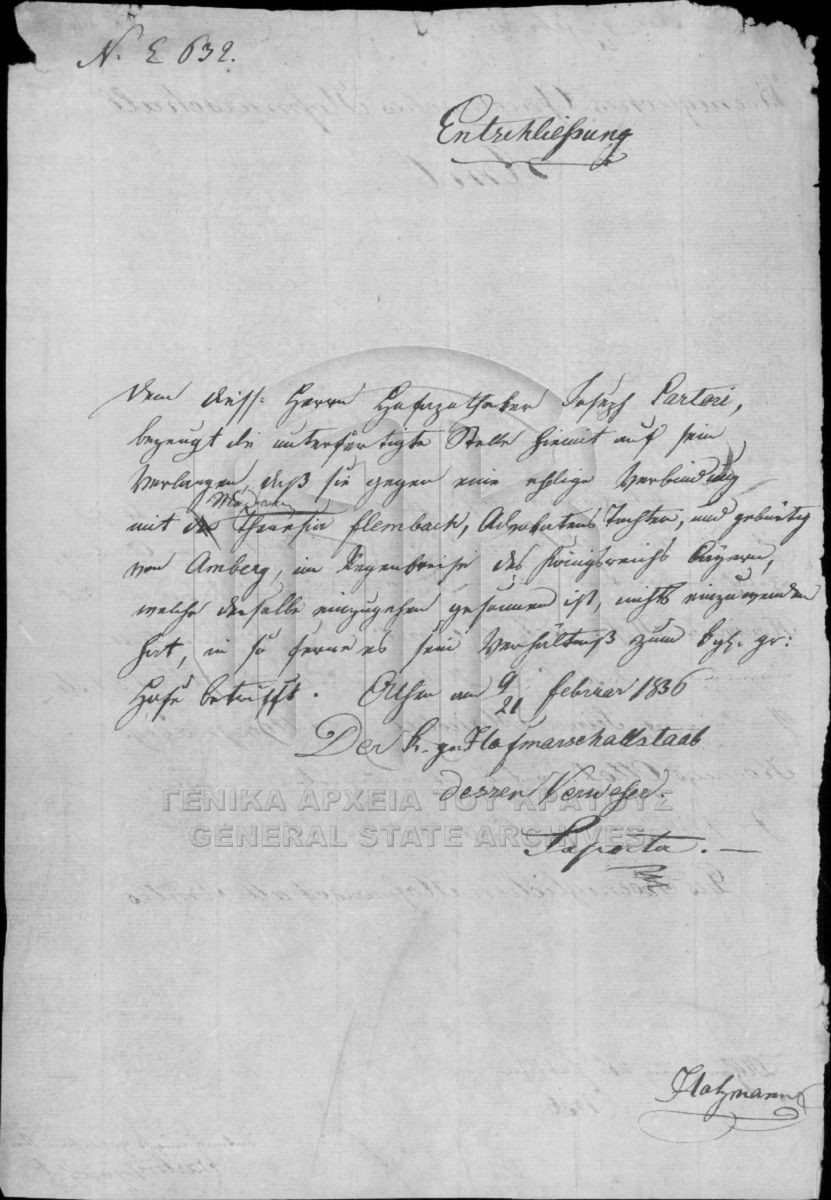 N. E 632.
Entschließung
Dem diess: Herrn Hofapotheker Joseph Sartori,
bezeugt die unterfertigte Stelle hiemit auf sein
Verlangen, daß sie gegen eine ehlige Verbindung
mit Theresia Flembach, Advokatens Tochter, und gebürtig
von Amberg, im Regenkreise des Königreichs Bayern,
welche derselbe einzugehen gesonnen ist, nichts einzuwenden
hat, in so ferne es sein Verhältniß zum kgl. gr:
Hofe betrifft. Athen am 9/21 Februar 1836
Der k. gr. Hofmarschallstaab
dessen Verweser.
Saporta.
ΓΕΝΙΚΑ ΑΡΧΕΙΑ ΤΟΥ ΚΡΑΤΟΥΣ
GENERAL STATE ARCHIVES